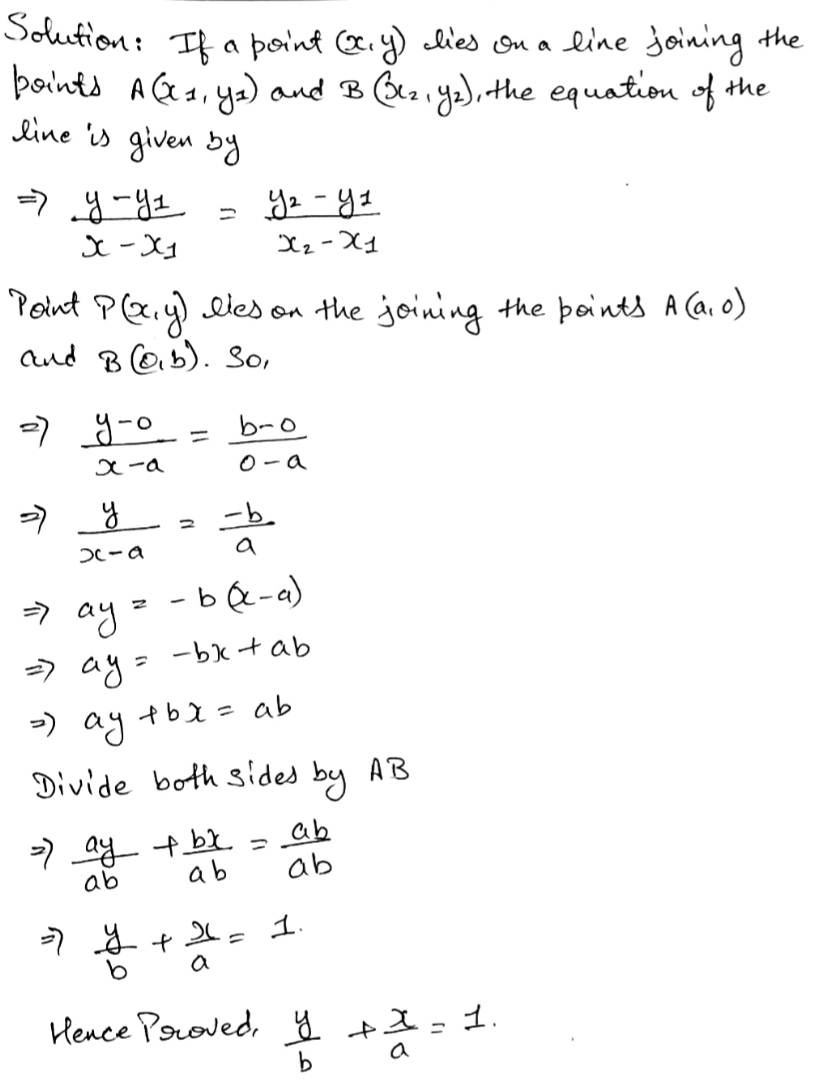 Solution: If a point (x,y) lies on a line joining the
points A(x1, y1) and B(x2, y2), the equation of the
line is given by
⇒ (y-y1)/(x-x1) = (y2-y1)/(x2-x1)
Point P(x,y) lies on the joining the points A(a,0)
and B(0,b). So,
⇒ (y-0)/(x-a) = (b-0)/(0-a)
⇒ y/(x-a) = -b/a
⇒ ay = -b(x-a)
⇒ ay = -bx + ab
⇒ ay + bx = ab
Divide both sides by AB
⇒ ay/ab + bx/ab = ab/ab
⇒ y/b + x/a = 1.
Hence Proved, y/b + x/a = 1.